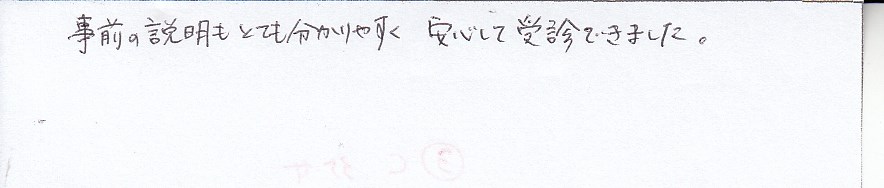 事前の説明もとても分かりやすく 安心して受診できました。